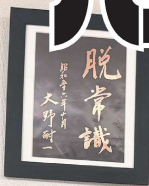 脱常識
昭和五十六年十月
大野耐一